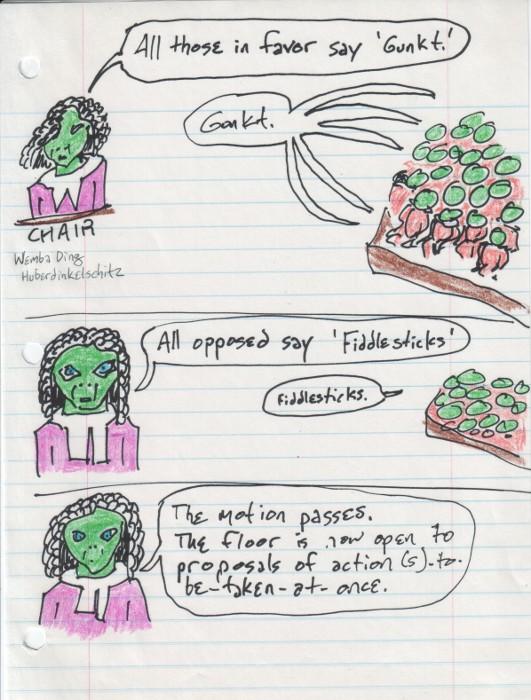 All those in favor say 'Gunkt.'
Gunkt.
CHAIR
Wemba Ding
Huberdinkelschitz
All opposed say 'Fiddlesticks'
Fiddlesticks.
The motion passes.
The floor is now open to
proposals of action(s)-to-
be-taken-at-once.